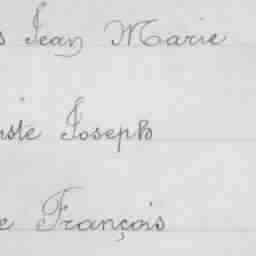 s Jean Marie
uste Joseph
e François